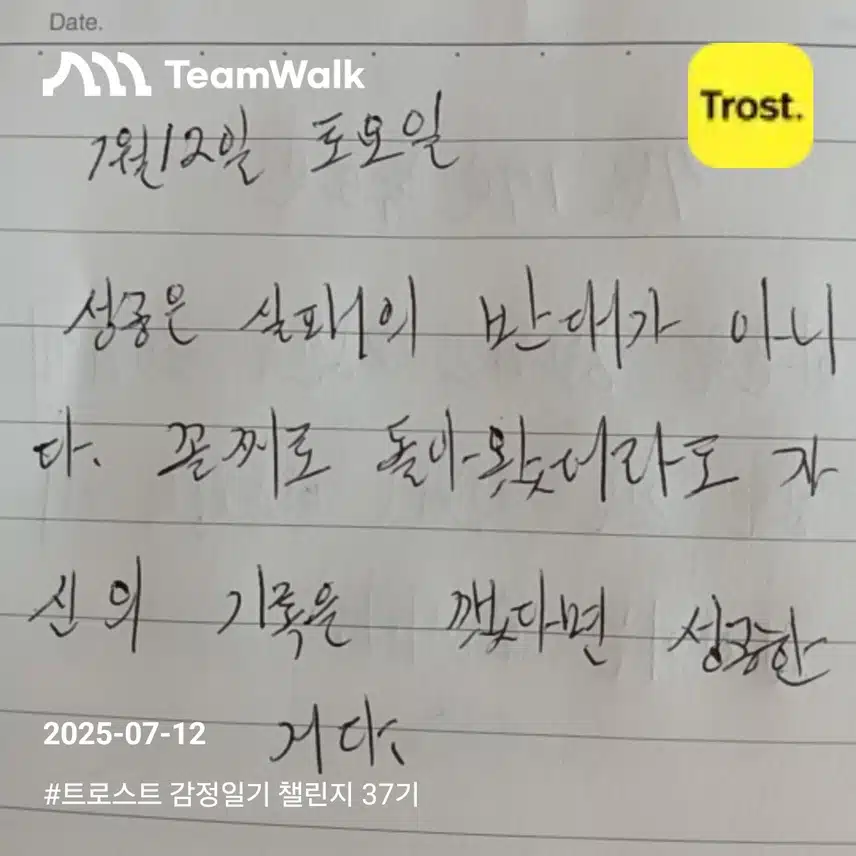 Date.
TeamWalk
Trost.
7월12일 토요일
성공은 실패의 반대가 아니
다. 꼴찌로 돌아왔더라도 자
신의 기록을 깼다면 성공한
거다.
2025-07-12
#트로스트 감정일기 챌린지 37기